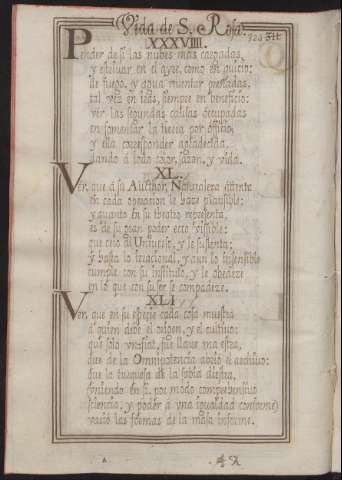 Vida de S. Rosa.
XXXVIIII.
Pender de si las nubes mas cargadas,
y estribar en el ayre, como en quicio:
de fuego, y agua mentar preñadas,
tal vez en iras, siempre en beneficio:
ver las segundas causas ocupadas
en fomentar la tierra por officio,
y ella corresponder agradecida,
dando á todo color, sazon, y vida.
XL.
Ver, que á su Aucthor, Naturaleza atenta
en cada operacion le haze plausible;
y quanto en su theatro representa,
es de su gran poder ecco visible:
que crió el Universo, y le sustenta;
y hasta lo irracional, y aun lo insensible
cumple con su instituto, y le obedeze
en lo que con su ser se compadeze.
XLI
Ver, que en su especie cada cosa muestra
á quien debe el origen, y el cultivo:
que solo un fiat, fue llave maestra,
que de la Omnipotencia abrió el archivo:
que la turquesa de la sabia diestra,
uniendo en si por modo comprehensivo
sciencia, y poder á una igualdad conforme
vació las formas de la masa informe.